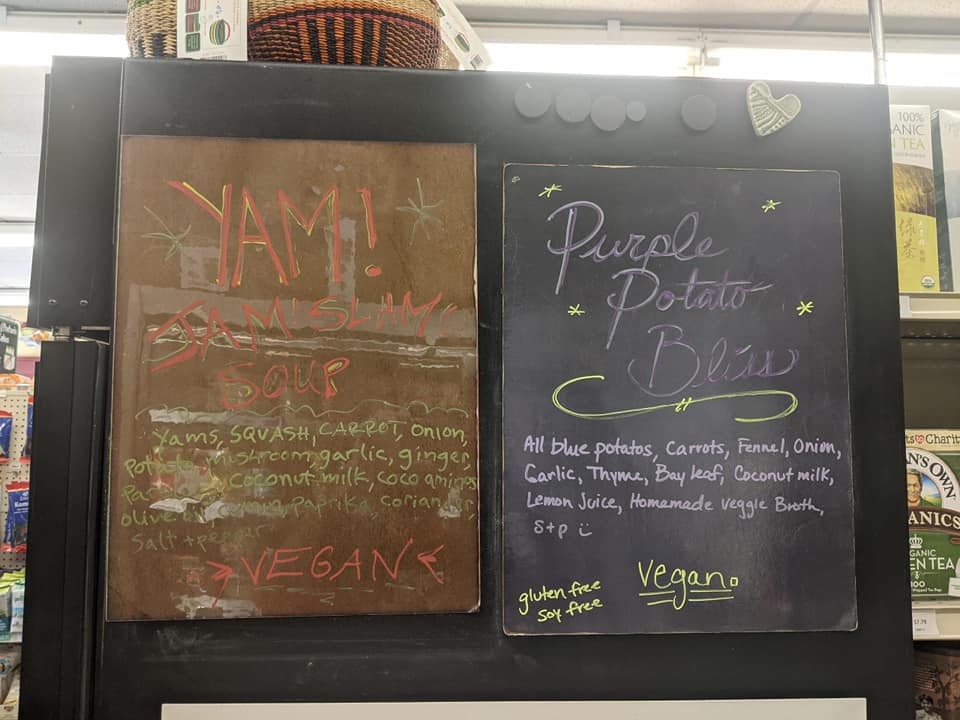 YAM!
JAM! SLAM!
SOUP
Yams, SQUASH, CARROT, Onion,
Potato, Mushroom, garlic, ginger,
Coconut milk, coco aminos
olive paprika, coriander,
Salt + pepper
VEGAN
Purple
Potato
Bliss
All blue potatos, Carrots, Fennel, Onion,
Garlic, Thyme, Bay leaf, Coconut milk,
Lemon Juice, Homemade veggie Broth,
S+p
gluten free
soy free
vegan.
100%
ANIC
N TEA
绿
茶
ts to Charit
N'S OWN
ANICS
GANIC
EN TEA
100